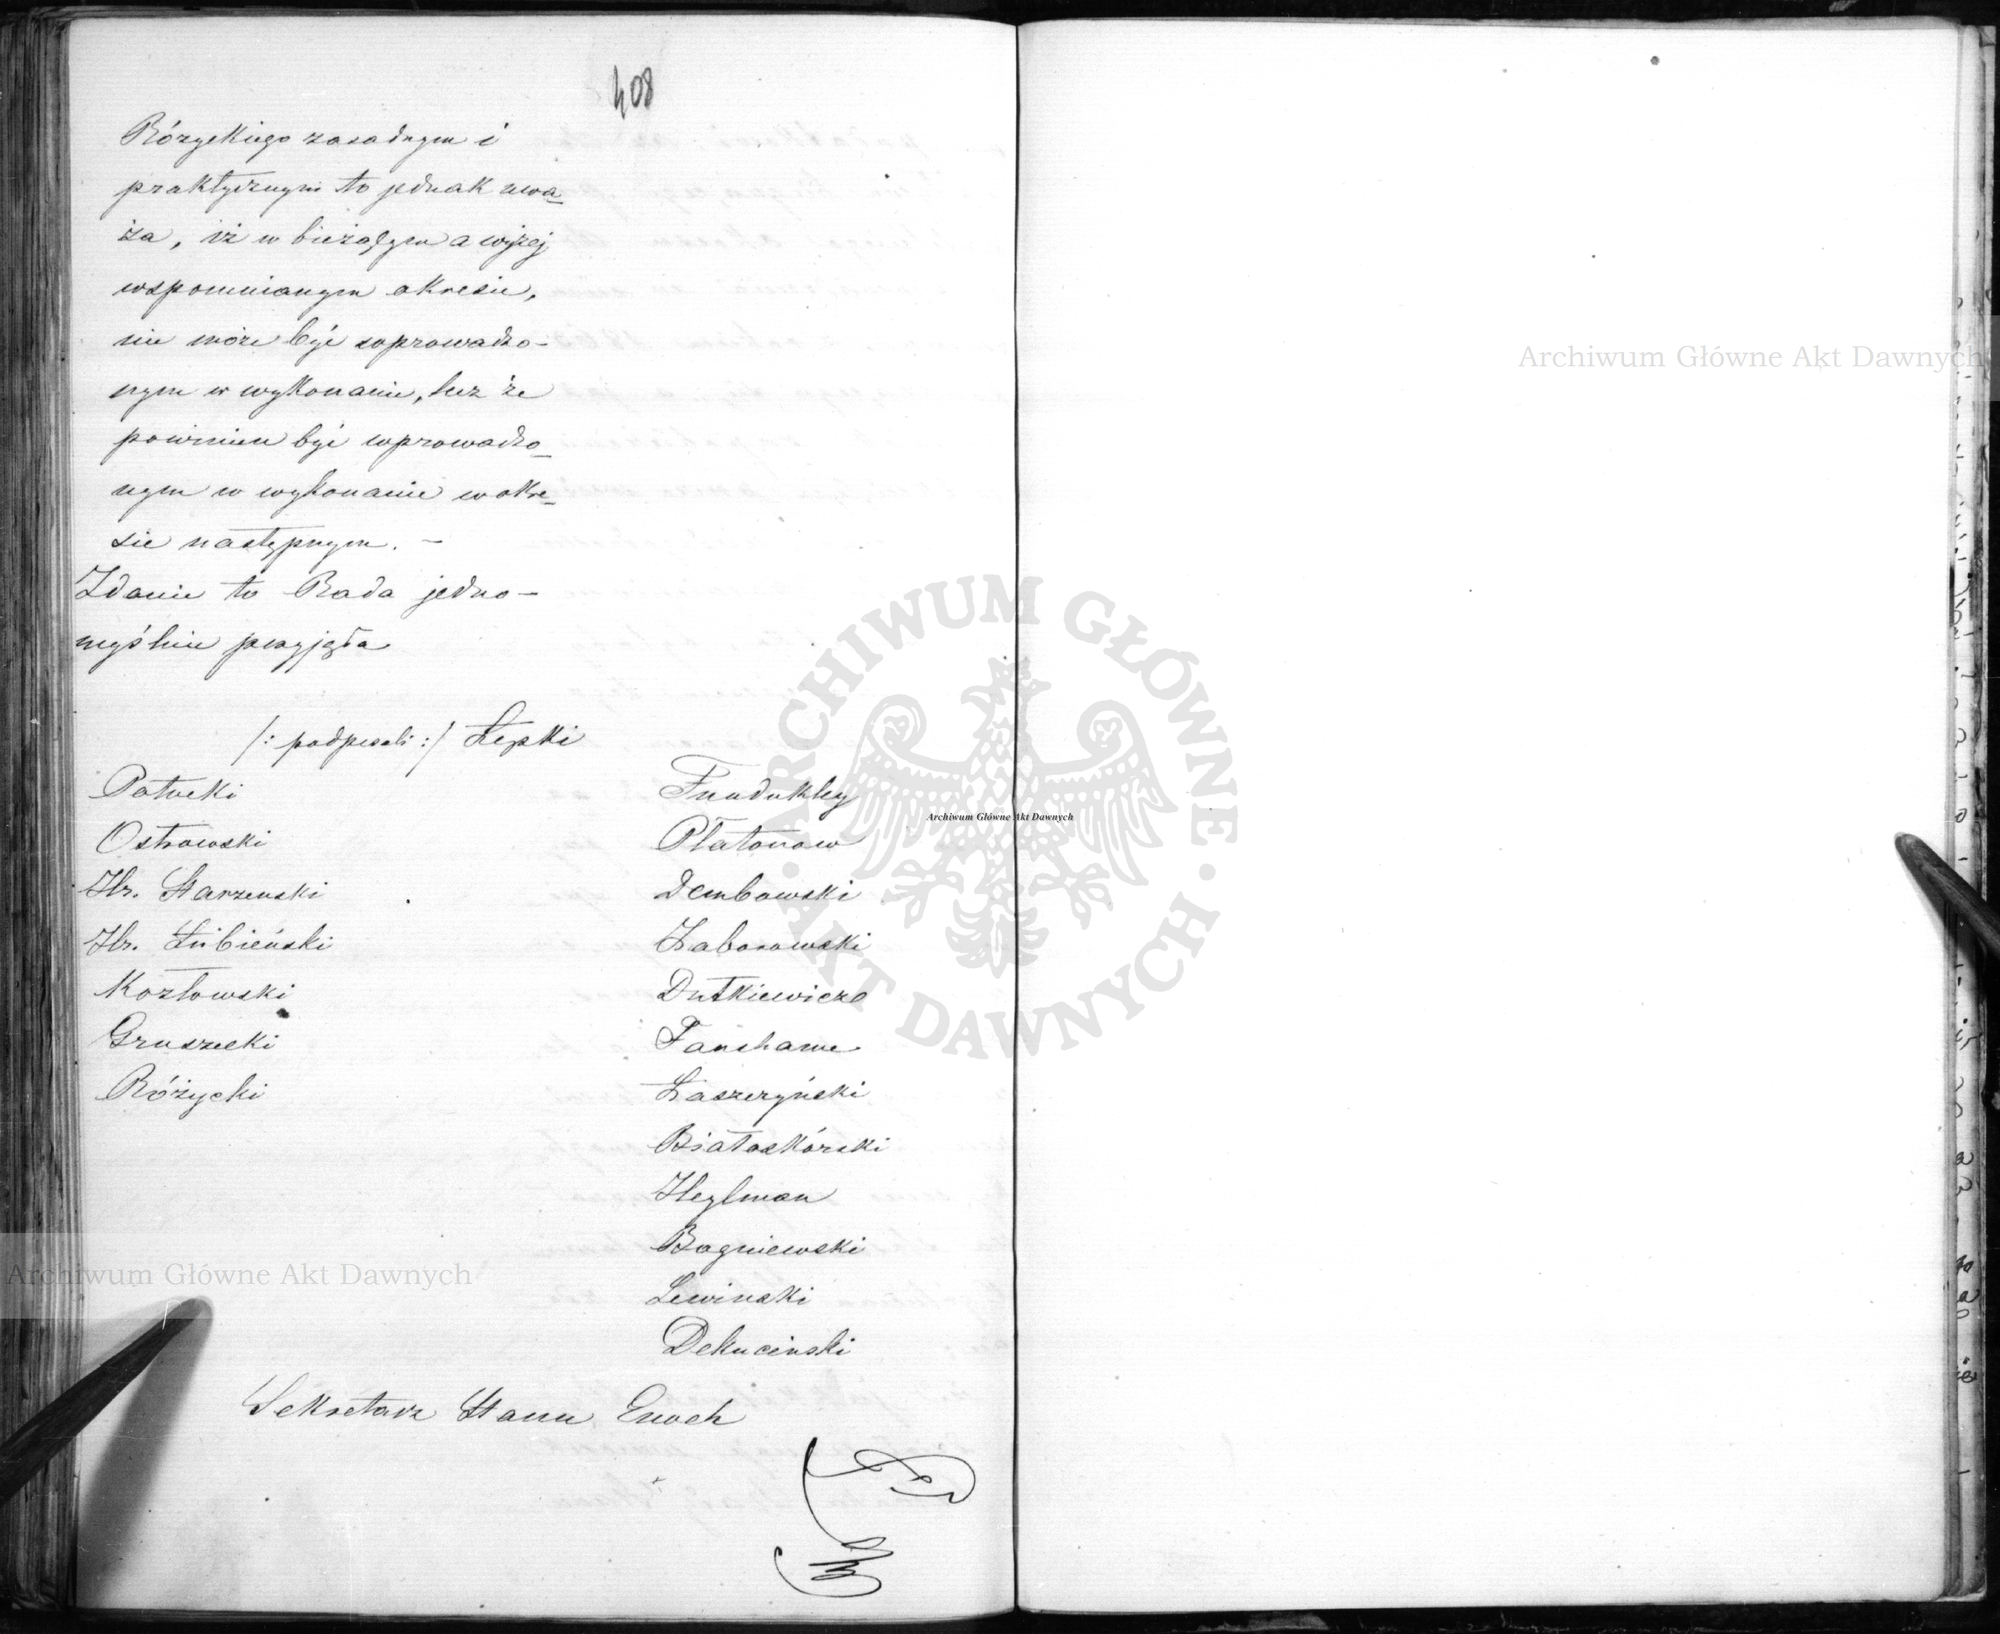 408
Różyckiego zasadnym i
praktycznym to jednak uwa-
ża, iż w bieżącym a wyżej
wspomnianym okresie,
nie może być wprowadzo-
nym w wykonanie, lecz że
powinien być wprowadzo-
nym w wykonanie w okre-
sie następnym. –
Zdanie to Rada jedno-
myślnie przyjęła
/: podpisali :/ Łęski
Potocki
Ostrowski
Hr. Starzenski
Hr. Łubieński
Kozłowski
Gruszecki
Różycki
Fundukley
Płatonow
Dembowski
Zaborowski
Dutkiewicz
Fanshawe
Łaszczyński
Białoskórski
Heylman
Bagniewski
Lewinski
Dekucinski
Sekretarz Stanu Enoch
Archiwum Główne Akt Dawnych
Archiwum Główne Akt Dawnych
Archiwum Główne Akt Dawnych
ARCHIWUM GŁÓWNE AKT DAWNYCH